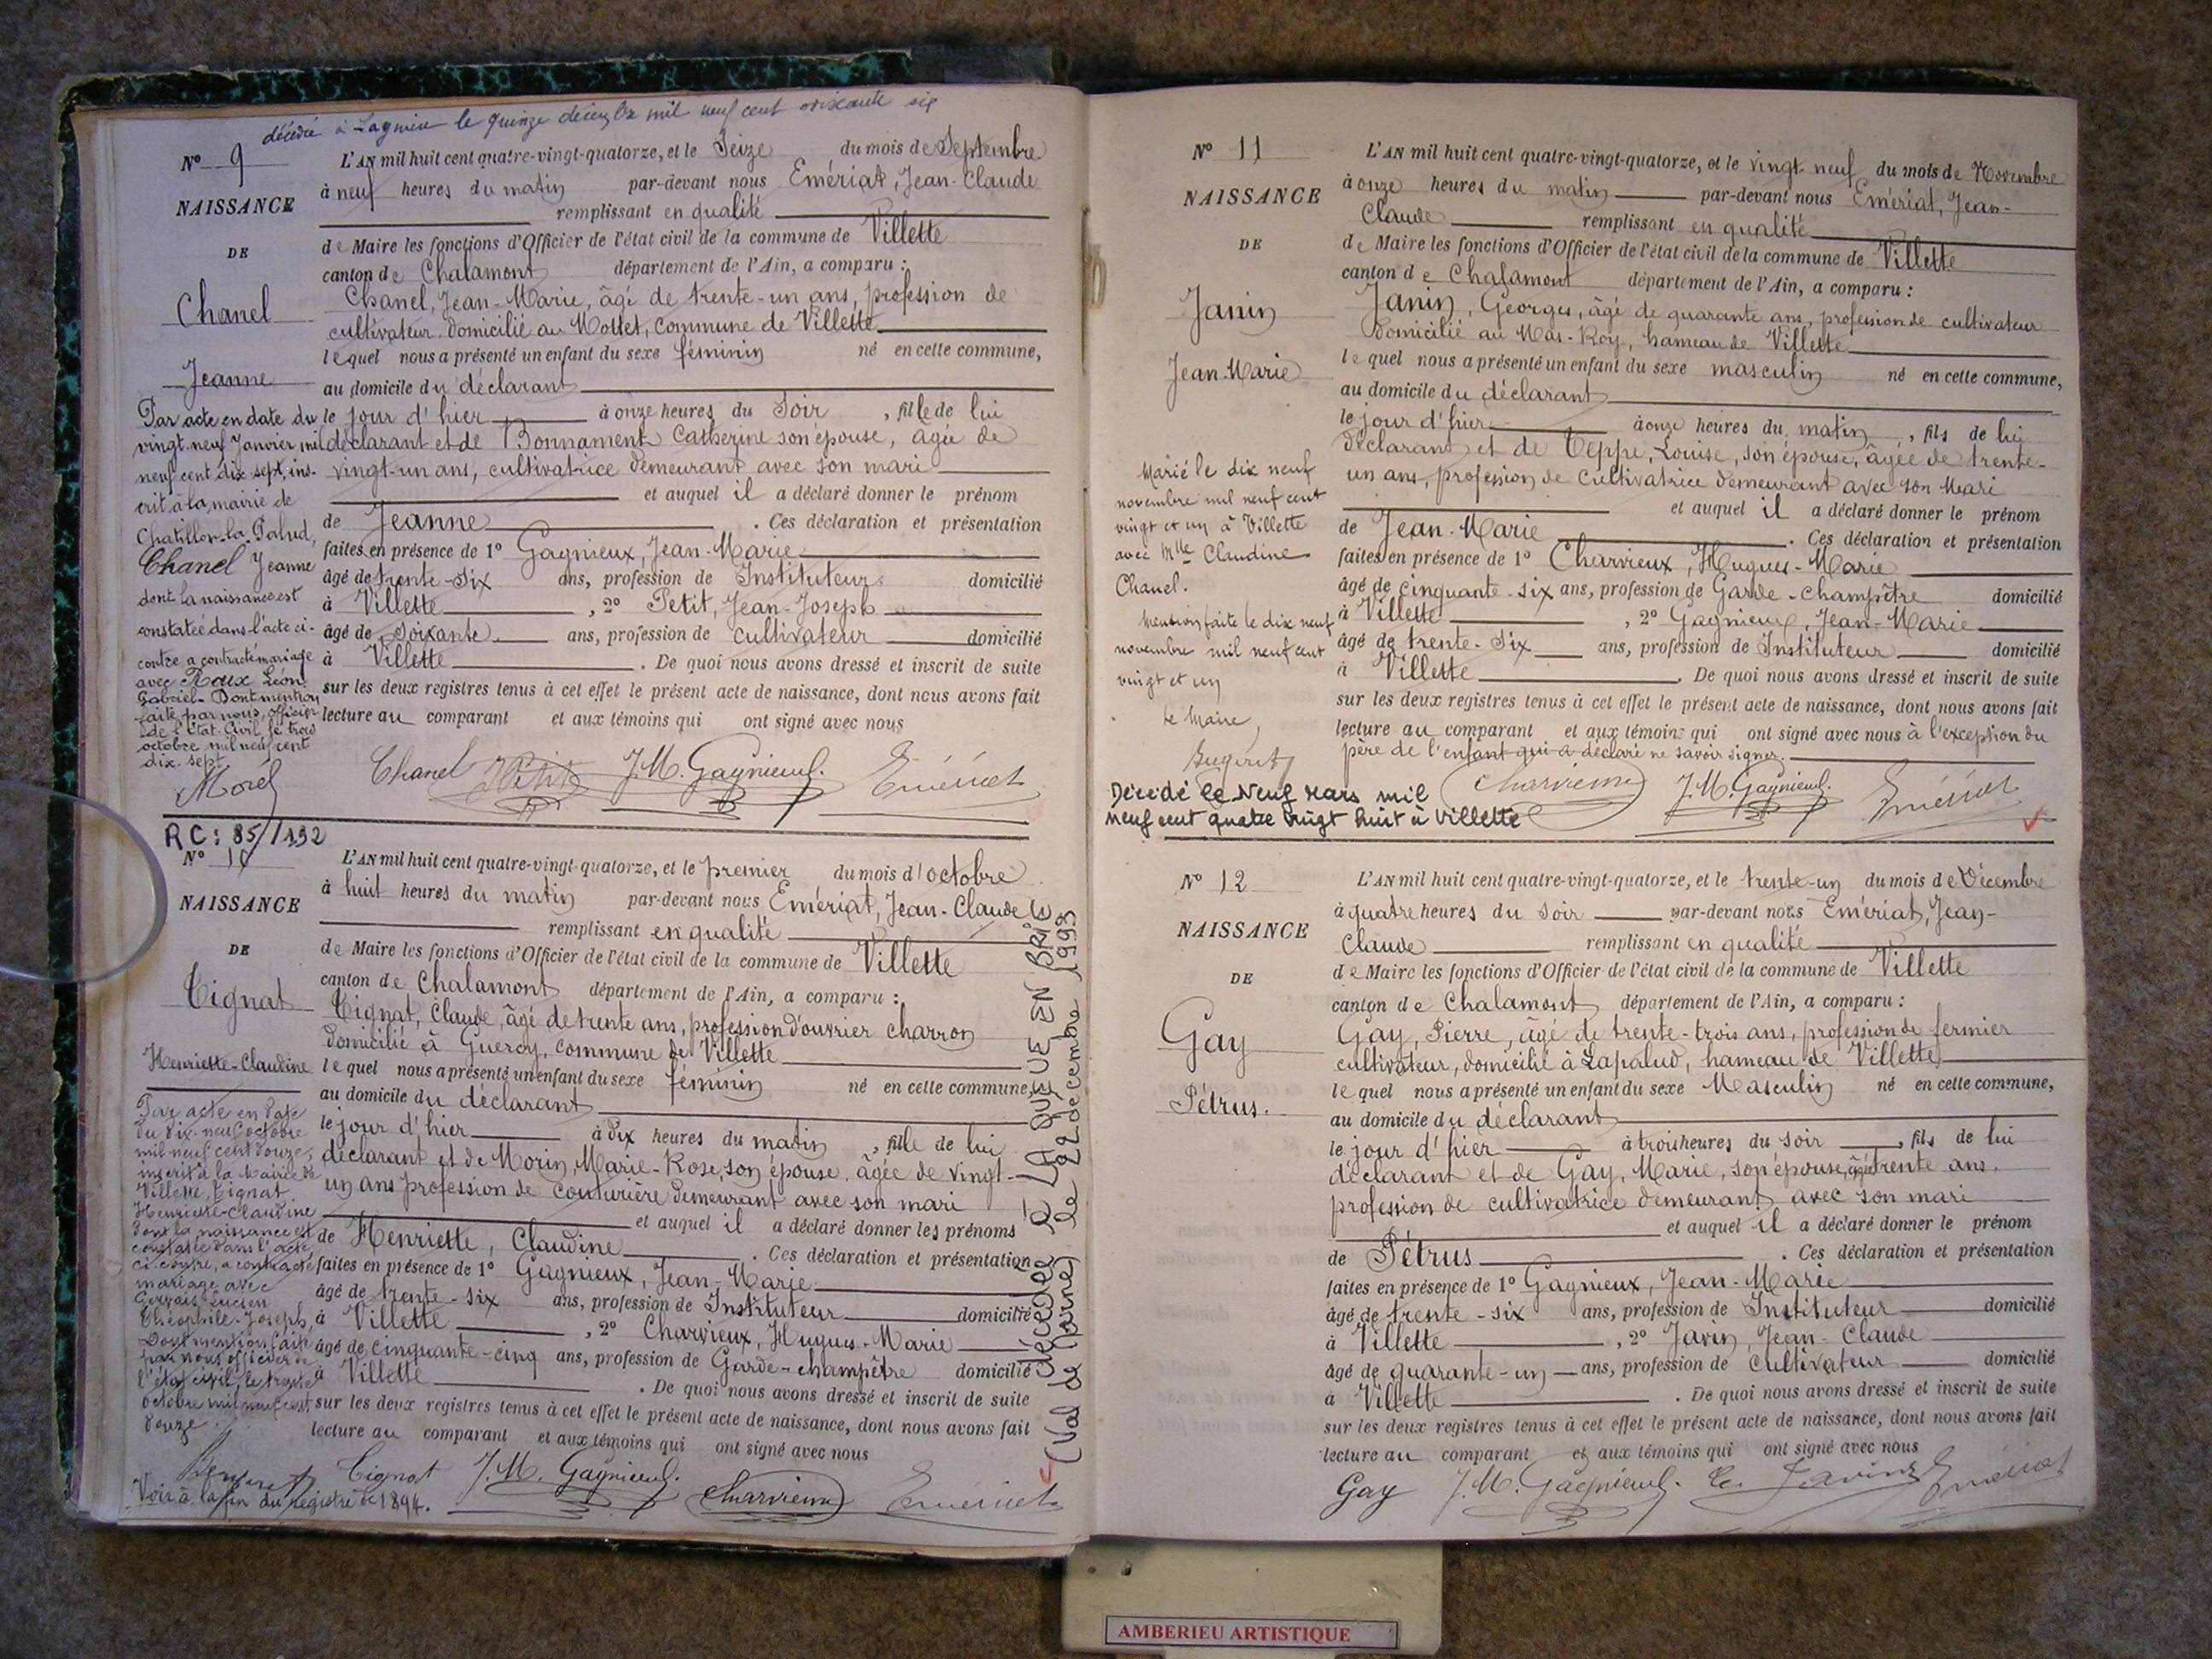 décédée à Lagnieu le quinze décembre mil neuf cent soixante six
N° 9
NAISSANCE
DE
Chanel
Jeanne
Par acte en date du
vingt-neuf Janvier mil
neuf cent dix sept, ins-
crit à la mairie de
Chatillon-la-Palud,
Chanel Jeanne
dont la naissance est
constatée dans l'acte ci-
contre a contracté mariage
avec Roux Léon
Gabriel. Dont mention
faite par nous, officier
de l'Etat-Civil, le trois
octobre mil neuf cent
dix-sept
Morel
L'AN mil huit cent quatre-vingt-quatorze, et le Seize du mois de Septembre
à neuf heures du matin par-devant nous Emériat, Jean-Claude
remplissant en qualité
de Maire les fonctions d'Officier de l'état civil de la commune de Villette
canton de Chalamont département de l'Ain, a comparu :
Chanel, Jean-Marie, âgé de trente-un ans, profession de
cultivateur domicilié au Mollet, commune de Villette
lequel nous a présenté un enfant du sexe féminin né en cette commune,
au domicile du déclarant
le jour d'hier à onze heures du Soir , fille de lui
déclarant et de Bonnament Catherine son épouse, âgée de
vingt-un ans, cultivatrice demeurant avec son mari
et auquel il a déclaré donner le prénom
de Jeanne . Ces déclaration et présentation
faites en présence de 1° Gagnieux, Jean-Marie
âgé de trente-six ans, profession de Instituteur domicilié
à Villette , 2° Petit, Jean-Joseph
âgé de soixante ans, profession de cultivateur domicilié
à Villette . De quoi nous avons dressé et inscrit de suite
sur les deux registres tenus à cet effet le présent acte de naissance, dont nous avons fait
lecture au comparant et aux témoins qui ont signé avec nous
Chanel Petit J.M. Gagnieux. Emériat
RC: 85/192
N° 10
NAISSANCE
DE
Tignat
Henriette-Claudine
Par acte en date
du dix-neuf octobre
mil neuf cent douze,
inscrit à la Mairie de
Villette, Tignat
Henriette-Claudine
dont la naissance est
constatée dans l'acte
ci-contre, a contracté
mariage avec
Gervais Lucien
Théophile-Joseph,
Dont mention faite
par nous officier de
l'état civil, le trente
octobre mil neuf cent
douze.
Voir à la fin du registre de 1894.
L'AN mil huit cent quatre-vingt-quatorze, et le premier du mois d'octobre
à huit heures du matin par-devant nous Emériat, Jean-Claude
remplissant en qualité
de Maire les fonctions d'Officier de l'état civil de la commune de Villette
canton de Chalamont département de l'Ain, a comparu :
Tignat, Claude, âgé de trente ans, profession d'ouvrier charron
domicilié à Gueroy, commune de Villette
lequel nous a présenté un enfant du sexe féminin né en cette commune,
au domicile du déclarant
le jour d'hier à dix heures du matin , fille de lui
déclarant et de Morin, Marie-Rose, son épouse, âgée de vingt-
un ans profession de couturière demeurant avec son mari
et auquel il a déclaré donner les prénoms
de Henriette, Claudine . Ces déclaration et présentation
faites en présence de 1° Gagnieux, Jean-Marie
âgé de trente-six ans, profession de Instituteur domicilié
à Villette , 2° Charvieux, Hugues-Marie
âgé de cinquante-cinq ans, profession de Garde-champêtre domicilié
à Villette . De quoi nous avons dressé et inscrit de suite
sur les deux registres tenus à cet effet le présent acte de naissance, dont nous avons fait
lecture au comparant et aux témoins qui ont signé avec nous
Tignat J.M. Gagnieux. Charvieux Emériat
Décédée à LA QUEUE EN BRIE
(Val de Marne) le 22 décembre 1993
N° 11
NAISSANCE
DE
Janin
Jean-Marie
Marié le dix neuf
novembre mil neuf cent
vingt et un à Villette
avec Mlle Claudine
Chanel.
Mention faite le dix neuf
novembre mil neuf cent
vingt et un
Le Maire,
Décédé le Neuf Mars mil
neuf cent quatre vingt huit à Villette
L'AN mil huit cent quatre-vingt-quatorze, et le vingt-neuf du mois de Novembre
à onze heures du matin par-devant nous Emériat, Jean-
Claude remplissant en qualité
de Maire les fonctions d'Officier de l'état civil de la commune de Villette
canton de Chalamont département de l'Ain, a comparu :
Janin, Georges, âgé de quarante ans, profession de cultivateur
domicilié au Mas-Roy, hameau de Villette
lequel nous a présenté un enfant du sexe masculin né en cette commune,
au domicile du déclarant
le jour d'hier à onze heures du matin , fils de lui
déclarant et de Teppe, Louise, son épouse, âgée de trente-
un ans, profession de cultivatrice demeurant avec son mari
et auquel il a déclaré donner le prénom
de Jean-Marie . Ces déclaration et présentation
faites en présence de 1° Charvieux, Hugues-Marie
âgé de cinquante-six ans, profession de Garde-champêtre domicilié
à Villette , 2° Gagnieux, Jean-Marie
âgé de trente-six ans, profession de Instituteur domicilié
à Villette . De quoi nous avons dressé et inscrit de suite
sur les deux registres tenus à cet effet le présent acte de naissance, dont nous avons fait
lecture au comparant et aux témoins qui ont signé avec nous à l'exception du
père de l'enfant qui a déclaré ne savoir signer.
Charvieux J.M. Gagnieux. Emériat
N° 12
NAISSANCE
DE
Gay
Pétrus.
L'AN mil huit cent quatre-vingt-quatorze, et le trente-un du mois de Décembre
à quatre heures du soir par-devant nous Emériat, Jean-
Claude remplissant en qualité
de Maire les fonctions d'Officier de l'état civil de la commune de Villette
canton de Chalamont département de l'Ain, a comparu :
Gay, Pierre, âgé de trente-trois ans, profession de fermier
cultivateur, domicilié à Lapalud, hameau de Villette
lequel nous a présenté un enfant du sexe Masculin né en cette commune,
au domicile du déclarant
le jour d'hier à trois heures du soir , fils de lui
déclarant et de Gay, Marie, son épouse, âgée trente ans,
profession de cultivatrice demeurant avec son mari
et auquel il a déclaré donner le prénom
de Pétrus . Ces déclaration et présentation
faites en présence de 1° Gagnieux, Jean-Marie
âgé de trente-six ans, profession de Instituteur domicilié
à Villette , 2° Javin, Jean-Claude
âgé de quarante-un ans, profession de Cultivateur domicilié
à Villette . De quoi nous avons dressé et inscrit de suite
sur les deux registres tenus à cet effet le présent acte de naissance, dont nous avons fait
lecture au comparant et aux témoins qui ont signé avec nous
Gay J.M. Gagnieux. Javin Emériat
AMBERIEU ARTISTIQUE